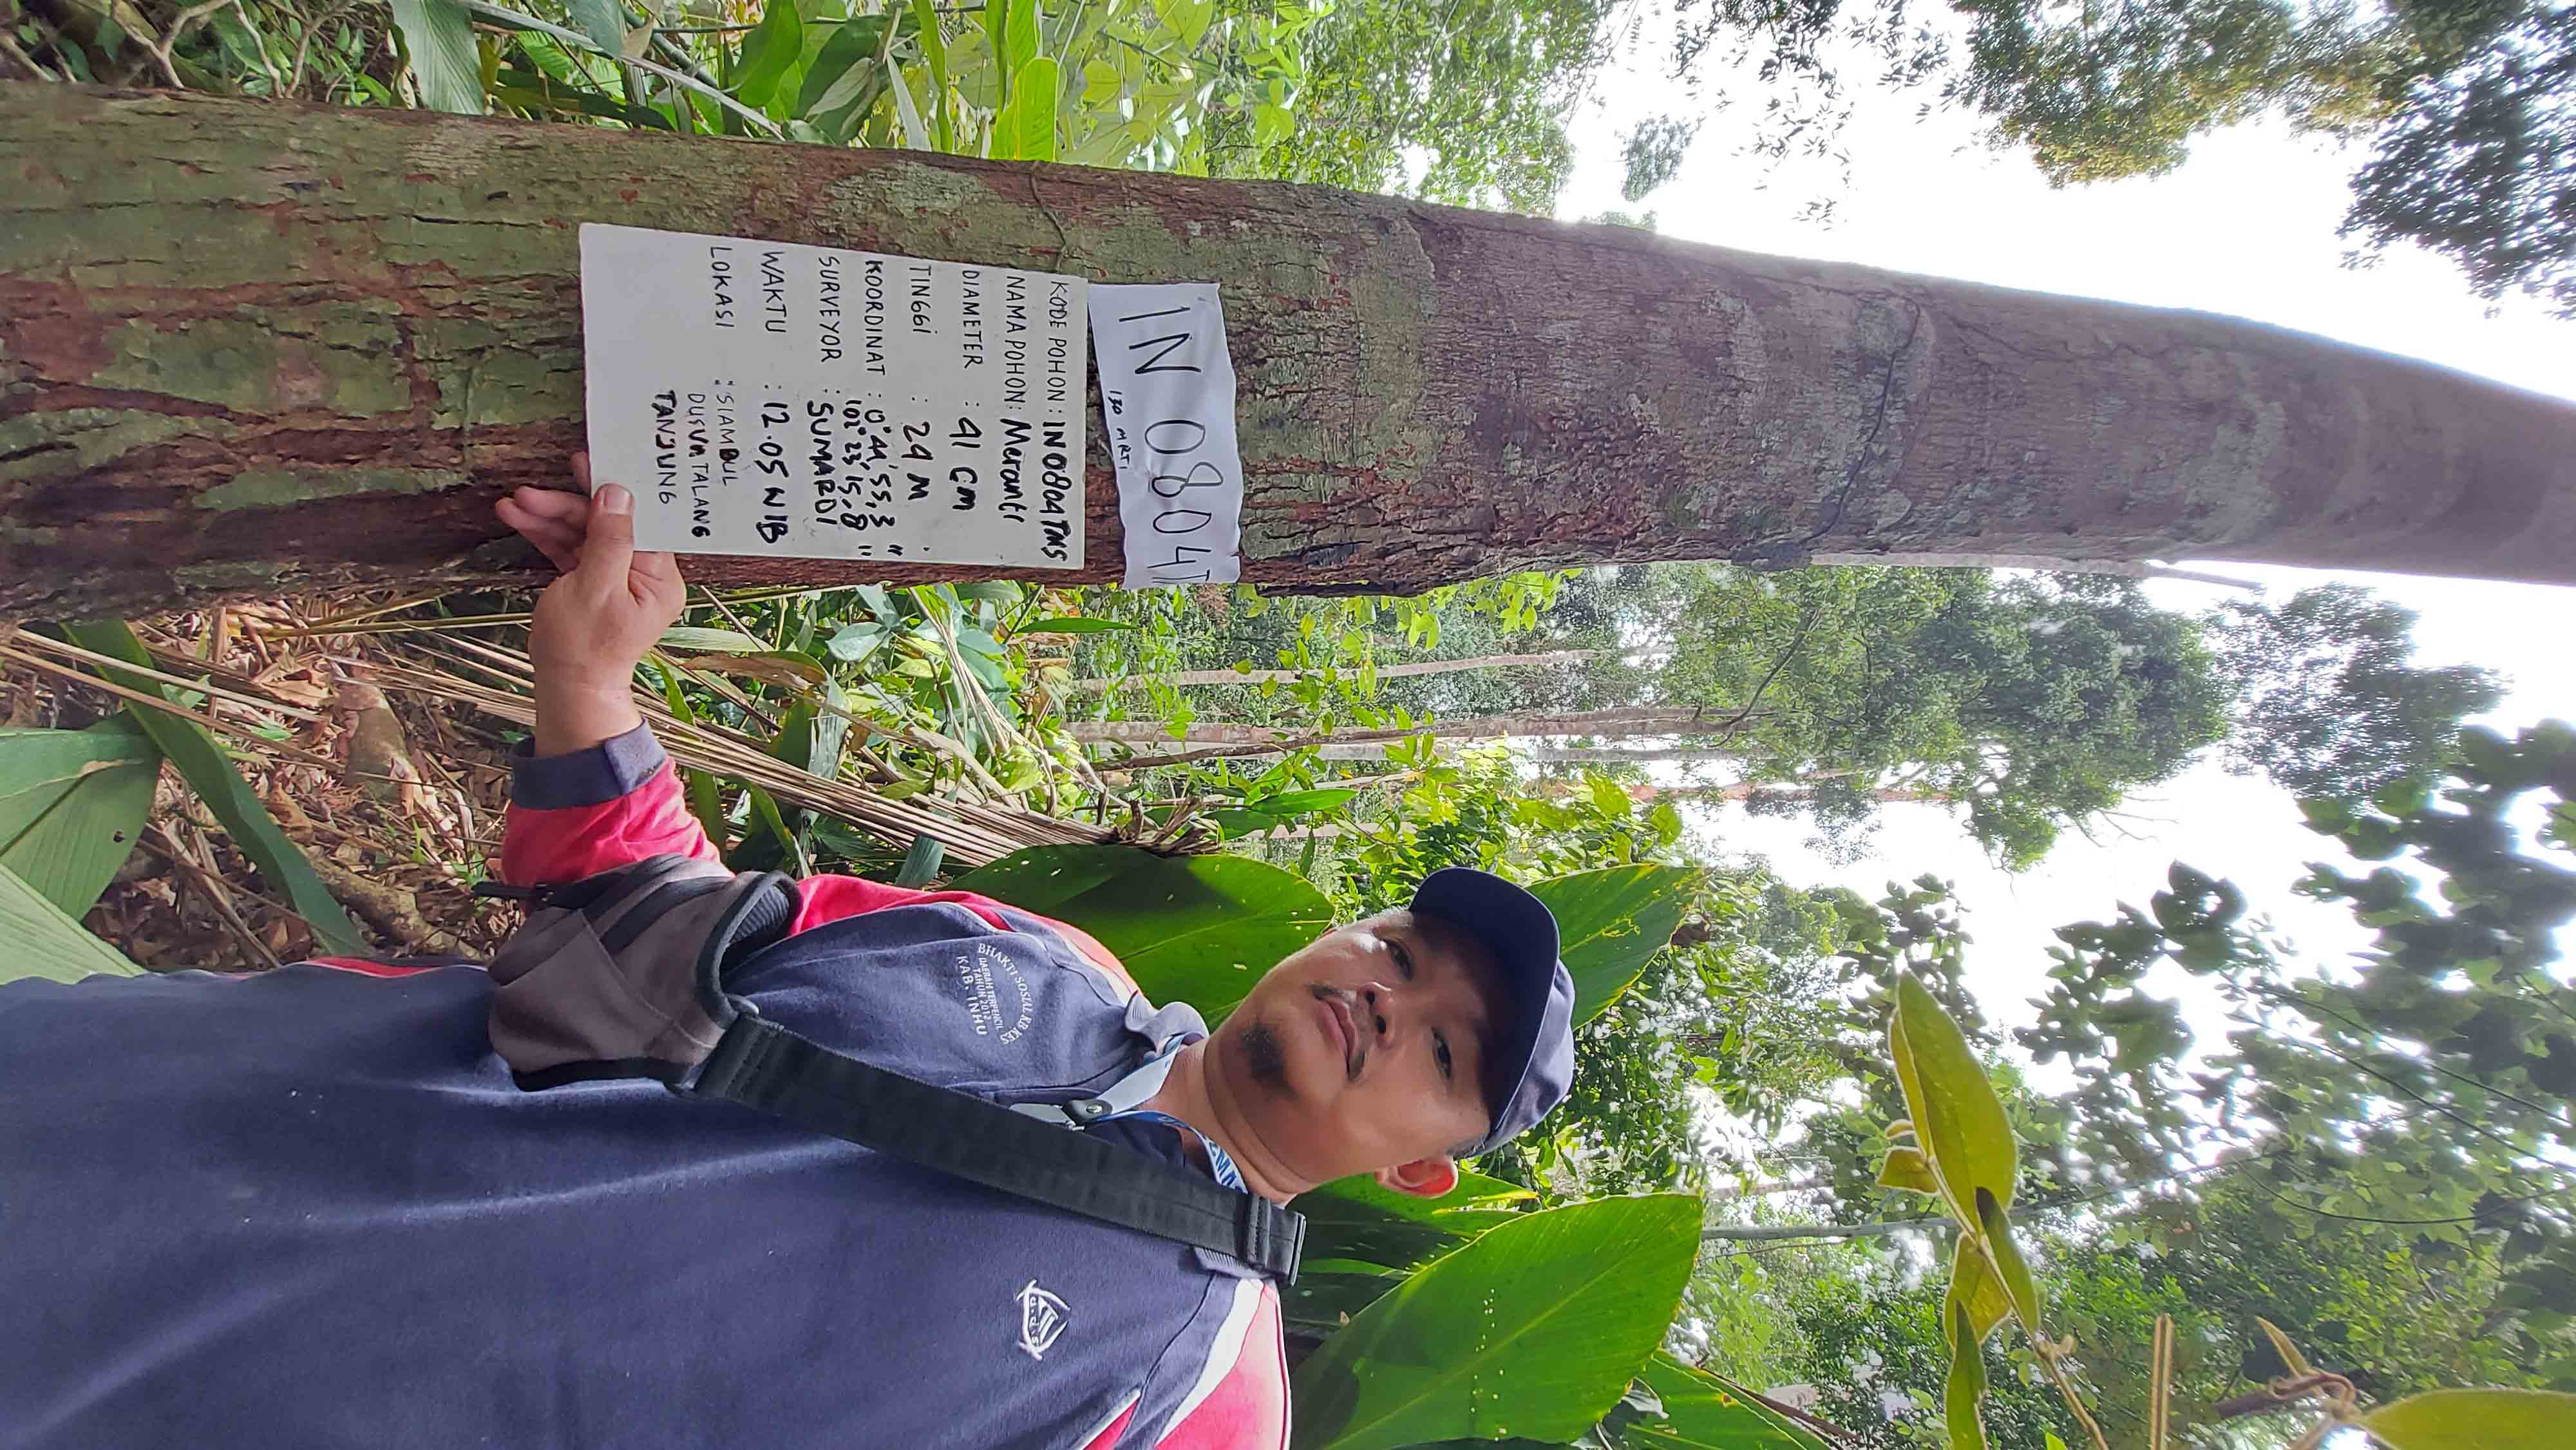 IN 0804T
130 MRTI
KODE POHON : IN0804TMS
NAMA POHON : Meranti
DIAMETER : 41 CM
TINGGI : 24 M
KOORDINAT : 0°44'55,3"
102°23'15,8"
SURVEYOR : SUMARDI
WAKTU : 12.05 WIB
LOKASI : SIAMBUL
DUSUN TALANG
TANJUNG
BHAKTI SOSIAL KB KES
DAERAH TERPENCIL
TAHUN 2012
KAB. INHU